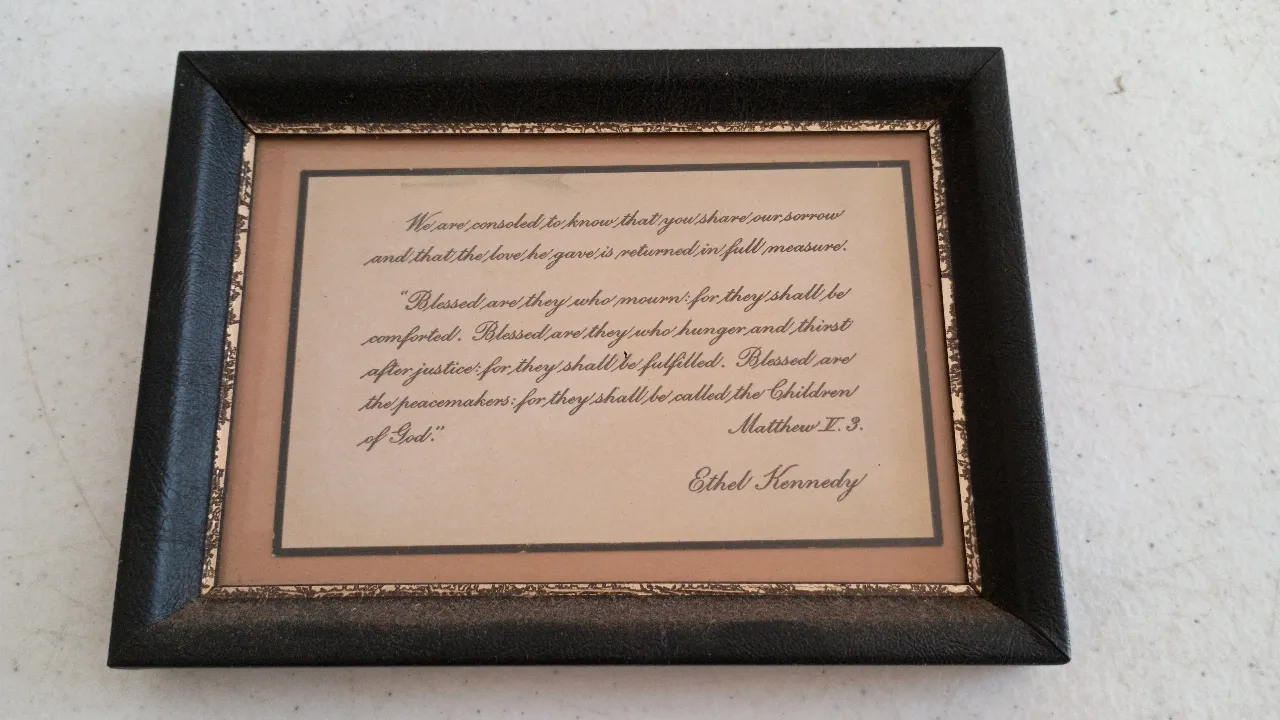 We are consoled to know that you share our sorrow
and that the love he gave is returned in full measure.
"Blessed are they who mourn: for they shall be
comforted. Blessed are they who hunger and thirst
after justice: for they shall be fulfilled. Blessed are
the peacemakers: for they shall be called the Children
of God." Matthew V. 3.
Ethel Kennedy